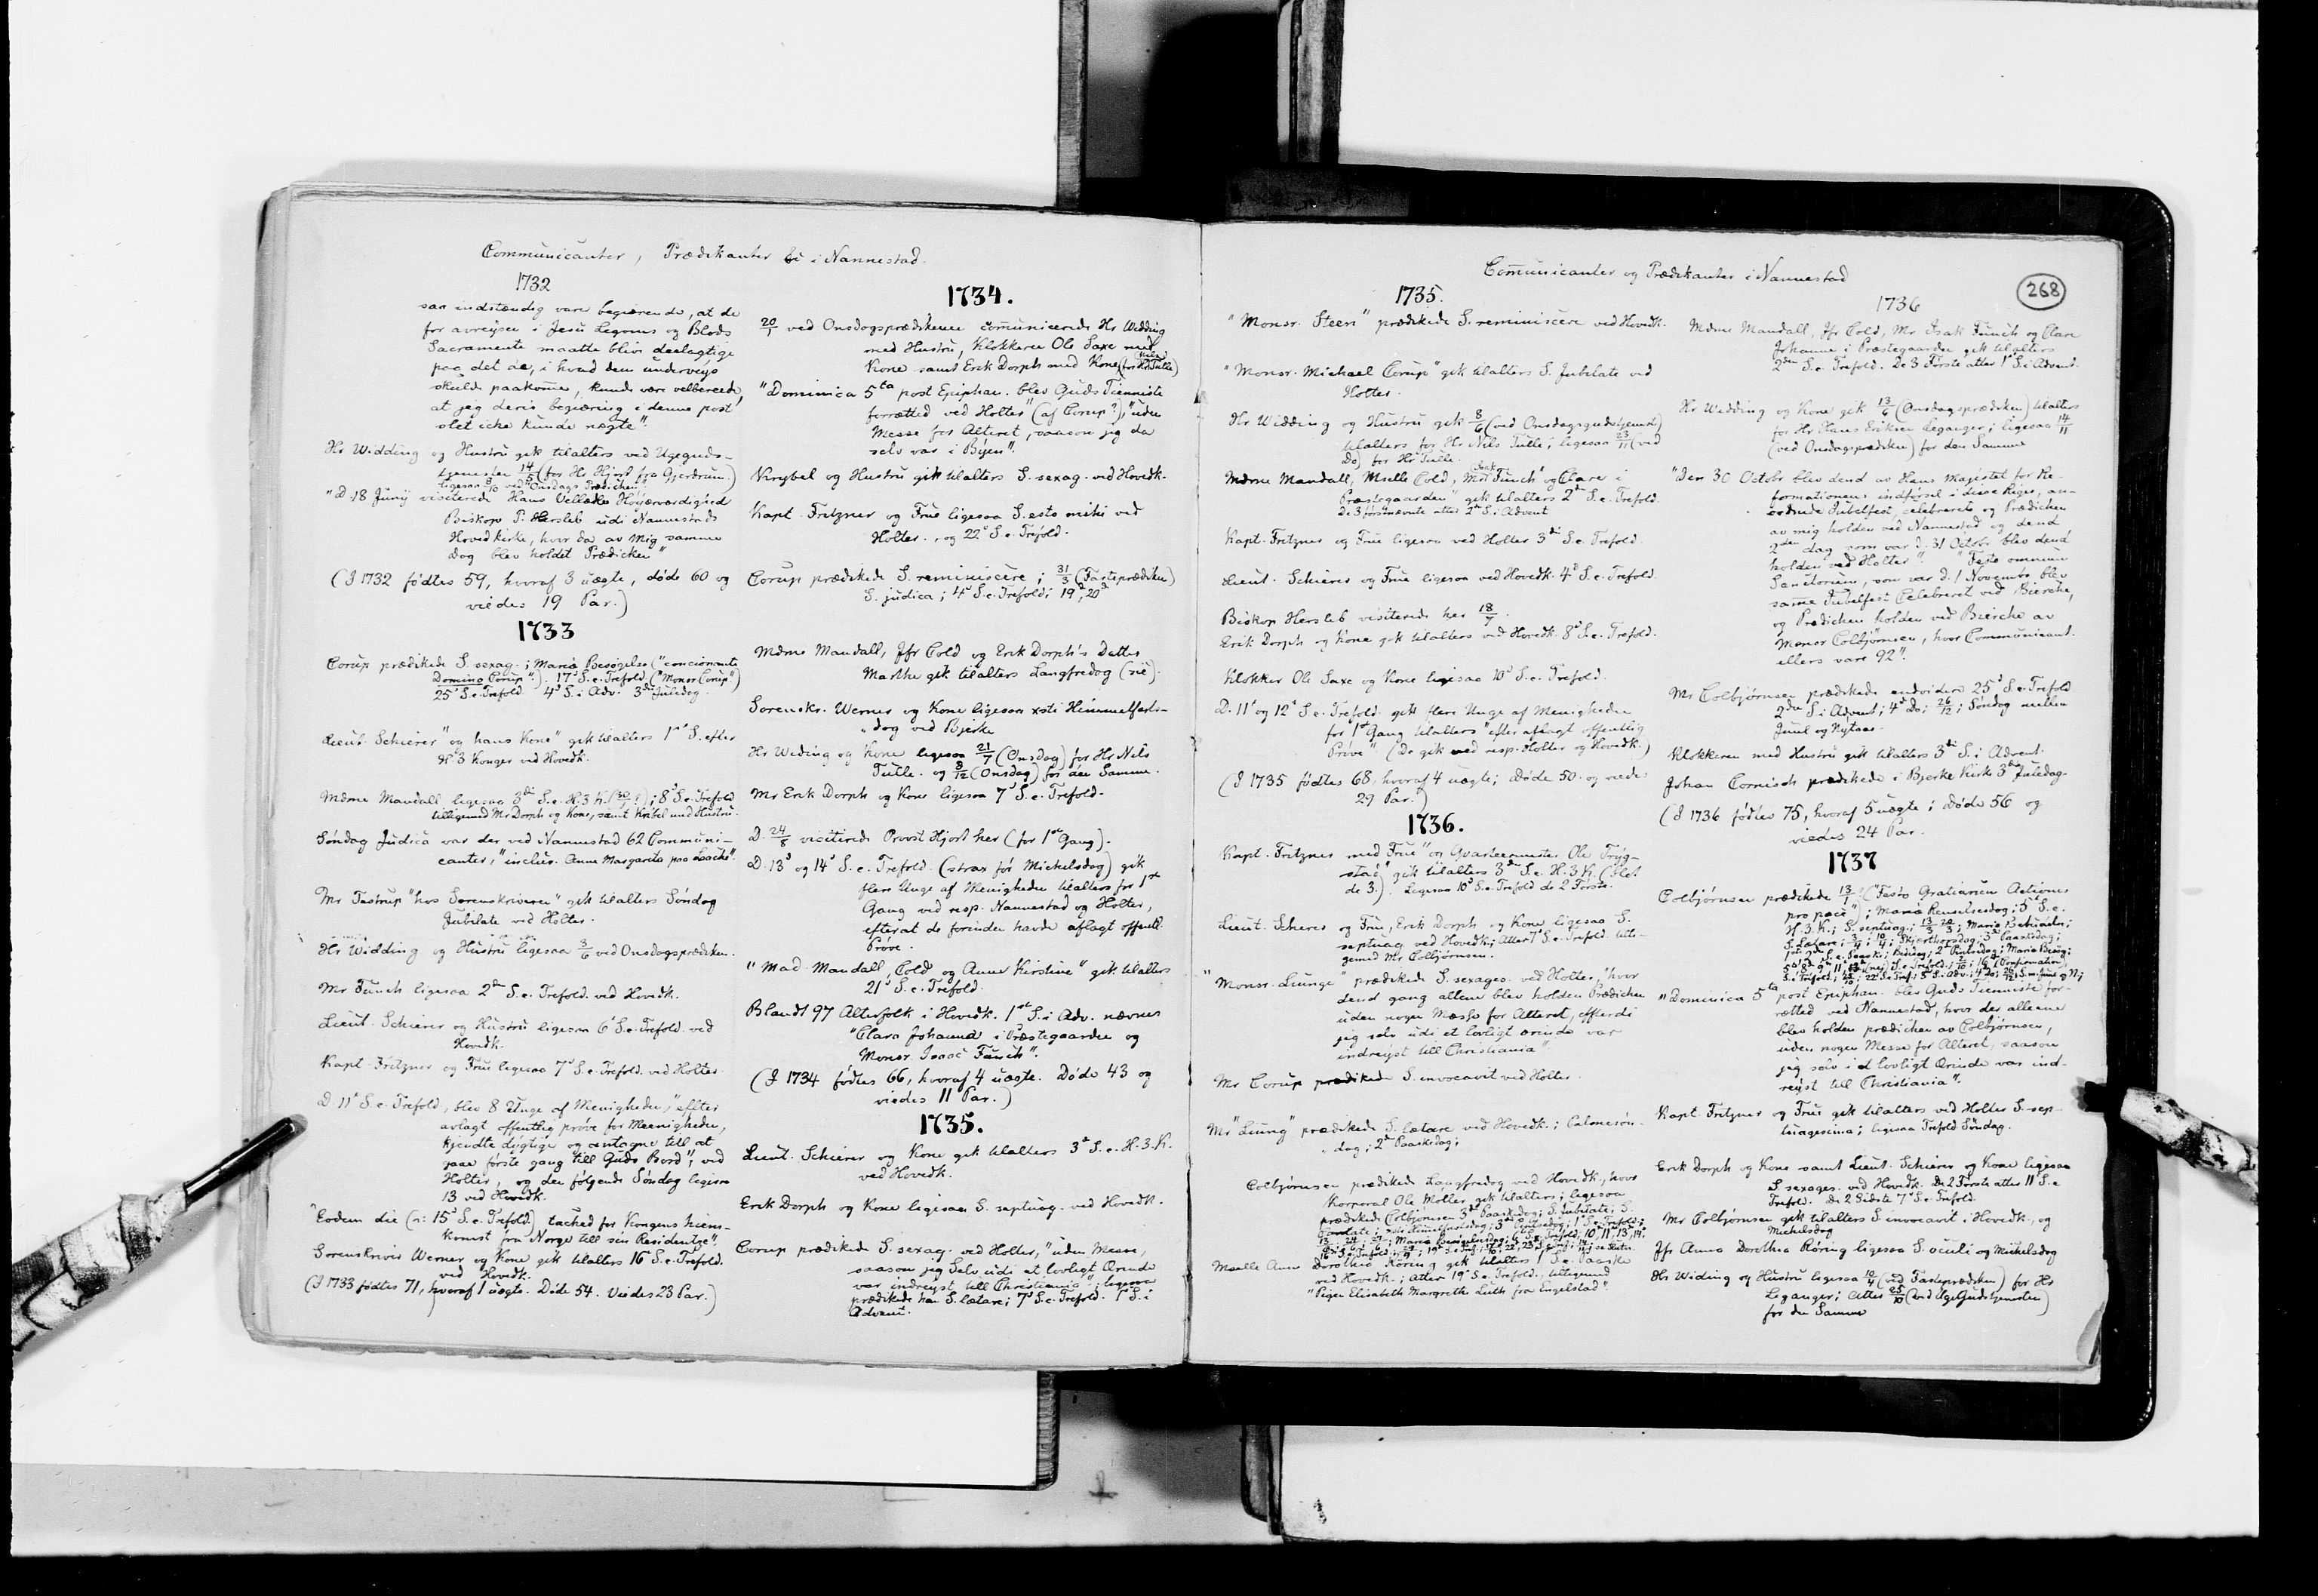 Communicanter, Prædikanter &c i Nannestad.
1732
saa indstændig vare begiærende, at de
for avreysen i Jesu Legoms og Blods
Sacramente maatte blive deelagtige
paa det de, i hvad dem underveys
skulde paakome, kunde være velberede,
at jeg deris begiæring i denne post
slet icke kunde nægte".
Hr Widding og Hustru gik tilalters ved Ugeguds-
tjenesten 14/5 (for Hr Hjort fra Gjerdrum)
ligesaa 8/10 ved "Onsdags Prædiken"
"D. 18 Junij visiterede Hans Velædle Höyærværdighed
Biskop P. Hersleb udi Nannestads
Hovedkirke, hvor da av mig samme
dag blev holdet Prædicken"
(I 1732 födtes 59, hvoraf 3 uægte, døde 60 og
viedes 19 Par.)
1733
Corup prædikede S. sexag.; Mariä Besøgelse ("concionante
Domino Corup"). 17de S. e. Trefold. ("Monsr Corup")
25de S. e. Trefold. 4de S. i Adv. 3die Juledag.
Lieut. Schierer "og hans Kone" gik tilalters 1ste S. efter
H. 3 Konger ved Hovedk.
Mdme Mandall ligesaa 3die S. e. H. 3 K. (30/1 ?); 8de S. e. Trefold.
tilligemed Mr Dorph og Kone, samt Krÿbel med Hustru.
Søndag Judica var der ved Nannestad 62 Communi-
canter, "inclus. Anna Margareta paa Laache".
Mr Tastrup "hos Sorenskriveren" gik tilalters Søndag
Jubilate ved Holter.
Hr Widding og Hustru ligesaa 3/6 ved Onsdagsprædiken.
Mr Funch ligesaa 2den S. e. Trefold. ved Hovedk.
Lieut. Schierer og Hustru ligesaa 6te S. e. Trefold. ved
Hovedk.
Kapt. Fritzner og Frue ligesaa 7de S. e. Trefold. ved Holter.
D. 11te S. e. Trefold, blev 8 Unge af Menigheden, "effter
avlagt offentlig prøve for Meenigheden,
kjendte dygtige og antagne till at
gaae første gang till Guds Bord", ved
Holter, og den følgende Søndag ligesaa
13 ved Hovedk.
"Eodem die (ɔ: 15de S. e. Trefold.) tacked for Kongens hiem-
komst fra Norge till sin Residentze".
Sorenskriver Werner og Kone gik tilalters 16 S. e. Trefold.
ved Hovedk.
(I 1733 fødtes 71, hvoraf 1 uægte. Døde 54. Viedes 23 Par.)
1734.
20/1 ved Onsdagsprædikenen communicerede Hr Widding
med Hustru, Klokkeren Ole Saxe med
Kone samt Erik Dorph med Kone (for Hr Nils Tulle)
"Dominica 5ta post Epiphan. blev Guds Tienniste
forrætted ved Holter" (af Corup?), "uden
Messe for Alteret, saasom jeg da
selv var i Byen".
Krybel og Hustru gik tilalters S. sexag. ved Hovedk.
Kapt. Fritzner og Frue ligesaa S. esto mihi ved
Holter., og 22de S. e. Trefold.
Corup prædikede S. reminiscere; 31/3 (Fasteprædiken)
S. judica; 4de S. e. Trefold; 19de, 20de
Mdme Mandall, Jfr Cold og Erik Dorph's Datter
Marthe gik tilalters Langfredag (sic).
Sorenskr. Werner og Kone ligesaa xsti Himmelfarts-
dag ved Bjerke
Hr Widing og Kone ligesaa 21/7 (Onsdag) for Hr Nils
Tulle. og 8/12 (Onsdag) for den Samme.
Mr Erik Dorph og Kone ligesaa 7de S. e. Trefold.
D. 24/8 visiterede Provst Hjort her (for 1ste Gang).
D. 13de og 14de S. e. Trefold. (strax før Mickelsdag) gik
flere Unge af Menigheden tilalters for 1ste
Gang ved resp. Nannestad og Holter,
efterat de forinden havde aflagt offentl.
Prøve.
"Mad. Mandall, Cold og Anne Kirstine" gik tilalters
21de S. e. Trefold.
Blandt 97 Alterfolk i Hovedk. 1ste S. i Adv. nævnes
"Clara Johanna i Præstegaarden og
Monsr. Isaac Funch".
(I 1734 fødtes 66, hvoraf 4 uægte. Døde 43 og
viedes 11 Par.)
1735.
Lieut. Schierer og Kone gik tilalters 3die S. e. H. 3. K.
ved Hovedk.
Erik Dorph og Kone ligesaa S. septuag. ved Hovedk.
Corup prædikede S. sexag. ved Holter, "uden Messe,
saasom jeg Selv udi et lovligt Ærinde
var indreyst till Christiania"; ligesaa
prædikede han S. lætare; 7de S. e. Trefold. 1ste S. i
Advent.
Communicanter og Prædikanter i Nannestad
268
1735.
"Monsr. Steen" prædikede S. reminiscere ved Hovedk.
"Monsr. Michael Corup" gik tilalters S. Jubilate ved
Holter.
Hr Widding og Hustru gik 8/6 (ved Onsdagsgudstjeneste)
tilalters for Hr Nils Tulle; ligesaa 23/11 (ved
Do) for Hr Tulle.
Mdme Mandall, Mselle Cold, Mr Isak Funch "og Clare i
Præstegaarden" gik tilalters 2den S. e. Trefold.
De 3 førstnævnte atter 2den S. i Advent
Kapt. Fritzner og Frue ligesaa ved Holter 3die S. e. Trefold.
Lieut. Schierer og Frue ligesaa ved Hovedk. 4de S. e. Trefold.
Biskop Hersleb visiterede her 18/7.
Erik Dorph og Kone gik tilalters ved Hovedk. 8de S. e. Trefold.
Klokker Ole Saxe og Kone ligesaa 10de S. e. Trefold.
D. 11te og 12te S. e. Trefold. gik flere Unge af Menigheden
for 1ste Gang tilalters "efter aflagt offentlig
Prøve" (De gik ved resp. Holter og Hovedk.)
(I 1735 fødtes 68, hvoraf 4 uægte; Døde 50. og viedes
29 Par.)
1736.
Kapt. Fritzner med Frue "og Qvarteermester Ole Tryg-
stad" gik tilalters 3die S. e. H. 3. K. (
de 3.). Ligesaa 10de S. e. Trefold de 2 Første.
Lieut. Schierer og Frue, Erik Dorph og Kone ligesaa S.
septuag. ved Hovedk.; Atter 7de S. e. Trefold. tilli-
gemed Mr Colbjørnsen.
"Monsr. Liunge" prædikede S. sexages. ved Holter, "hvor
dend gang allene blev holden Prædichen
uden nogen Mæsse for Alteret, effterdi
jeg selv udi et lovligt ærinde var
indreyst till Christiania"
Mr Corup prædikede S. invocavit ved Holter.
Mr "Liung" prædikede S. lætare ved Hovedk.; Palmesøn-
dag; 2den Paaskedag;
Colbjørnsen prædikede Langfredag ved Hovedk., hvor
Korporal Ole Møller gik tilalters; ligesaa
prædikede Colbjørnsen 3die Paaskedag; S. Jubilate; S.
Cantate; xsti Himmelfartsdag; 3die Pintsedag; 1ste S. e. Trefold;
Mselle Anne Dorothea Röring gik tilalters 1ste S. e. Paaske
ved Hovedk.; Atter 19de S. e. Trefold., tilligemed
"Piigen Elisabeth Margrethe Luth fra Engelstad".
1736
Mdme Mandall, Jfr Cold, Mr Isak Funch og Clare
Johanne i Præstegaarden gik tilalters
2den S. e. Trefold. De 3 Første atter 1ste S. i Advent.
Hr Widding og Kone gik 13/6 (Onsdagsprædiken) tilalters
for Hr Hans Eriksen Leganger; ligesaa 14/11
(ved Onsdagsprædiken) for den Samme
"Den 30 Octobr blev dend av Hans Majestet for Re-
formationens indførsel i disse Riger, an-
ordnede Jubelfest, celebrerete og Prædichen
av mig holden ved Nannestad og dend
2den dag som var d. 31 Octobr blev dend
holden ved Holter". "Festo omnium
Sanctorum, som var d. 1 Novembr. blev
same Jubelfest Celebreret ved Bierche,
og Prædichen holden ved Bierche av
Monsr Colbjørnsen, hvor Communicant.
ellers vare 92".
Mr Colbjørnsen prædikede endvidere 25de S. e. Trefold
2den S. i Advent; 4de Do; 26/12; Søndag mellem
Juul og Nytaar.
Klokkeren med Hustru gik tilalters 3die S. i Advent.
Johan Cornisch prædikede i Bjerke Kirke 3die Juledag.
(I 1736 fødtes 75, hvoraf 5 uægte; Døde 56 og
viedes 24 Par.
1737
Colbjørnsen prædikede 13/1 ("Festo Gratiarum Actionis
pro pace"); Mariä Renselsesdag; 5te S. e.
H. 3. K.; S. septuag.; 13/3 20/3; Mariä Bebudelse;
S. Lætare; 3/4; 10/4; Skjærthorsdag; 3die Paaskedag;
"Dominica 5ta post Epiphan. blev Guds Tienniste for-
rætted ved Nannestad, hvor der allene
blev holden prædichen av Colbjørnsen,
uden nogen Messe for Alteret, saasom
jeg selv i et lovligt Ærinde var ind-
reyst till Christiania".
Kapt. Fritzner og Frue gik tilalters ved Holter S. sep-
tuagesima; ligesaa Trefold. Søndag.
Erik Dorph og Kone samt Lieut. Schierer og Kone ligesaa
S. sexages. ved Hovedk. De 2 Første atter 11te S. e.
Trefold. De 2 Sidste 7de S. e. Trefold.
Mr Colbjørnsen gik tilalters S. invocavit i Hovedk., og
Mickelsdag
Jfr Anna Dorothea Röring ligesaa S. oculi og Mickelsdag
Hr Widing og Hustru ligesaa 10/4 (ved Fasteprædiken) for Hr
Leganger; Atter 25/10 (ved Ugegudstjenesten)
for den Samme